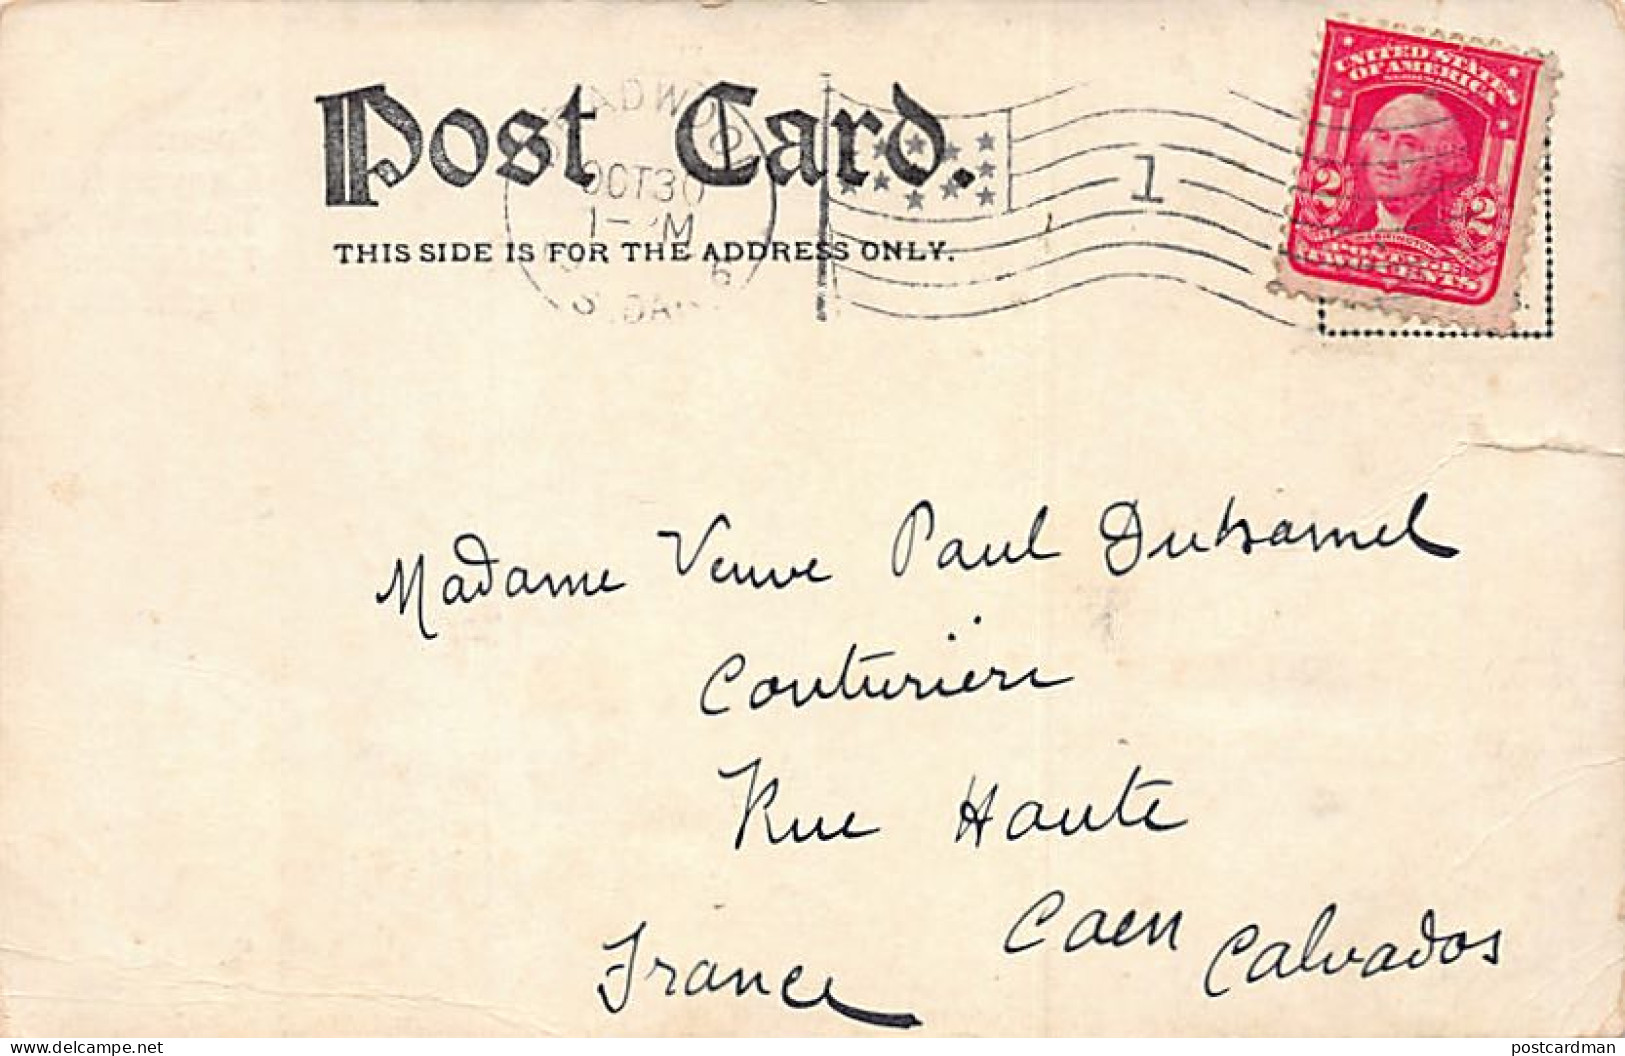 Post Card.
THIS SIDE IS FOR THE ADDRESS ONLY.
OCT 30
1
UNITED STATES
OF AMERICA
2 2
WASHINGTON
POSTAGE
TWO CENTS
Madame Veuve Paul Duhamel
Couturière
Rue Haute
Caen Calvados
France
delcampe.net
postcardman